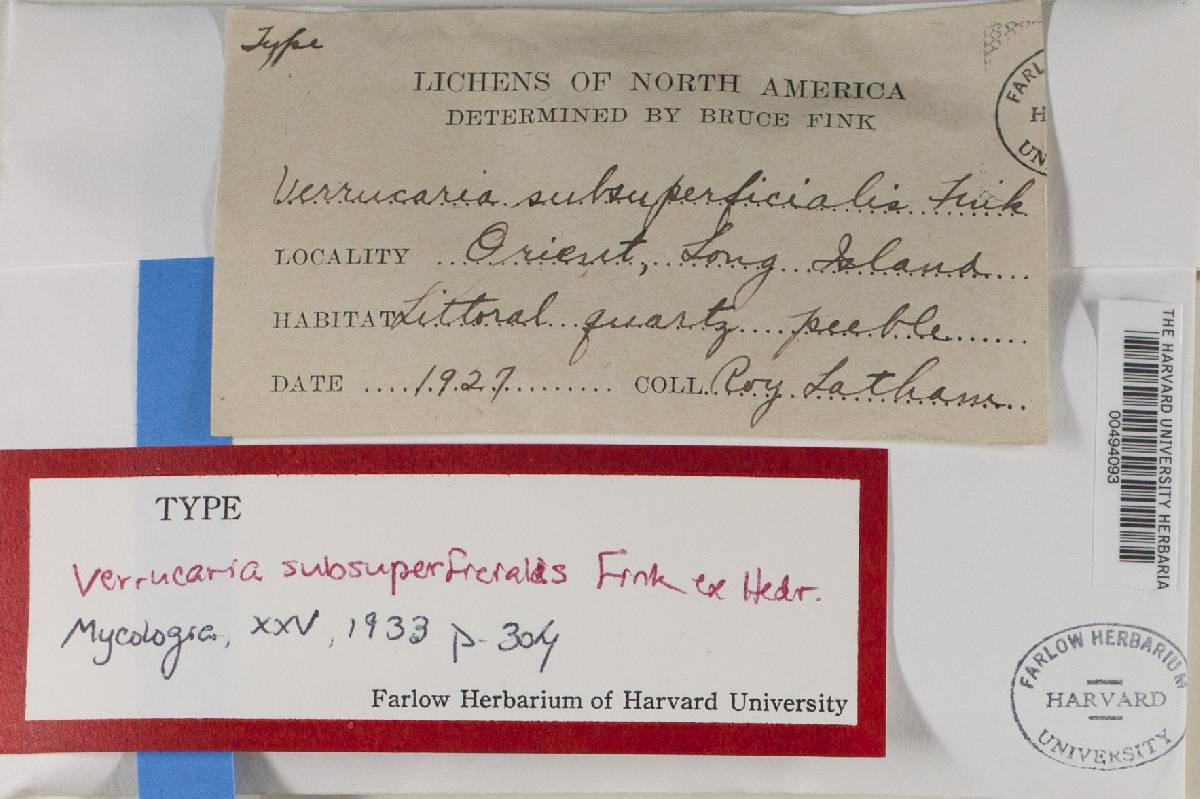 Type
LICHENS OF NORTH AMERICA
DETERMINED BY BRUCE FINK
Verrucaria subsuperficialis Fink
LOCALITY Orient, Long Island
HABITAT Littoral quartz peeble
DATE 1927 COLL. Roy Latham
FARL
H
UN
TYPE
Verrucaria subsuperficialis Fink ex Hedr.
Mycologia, XXV, 1933 p. 304
Farlow Herbarium of Harvard University
THE HARVARD UNIVERSITY HERBARIA
00494093
FARLOW HERBARIUM
HARVARD
UNIVERSITY